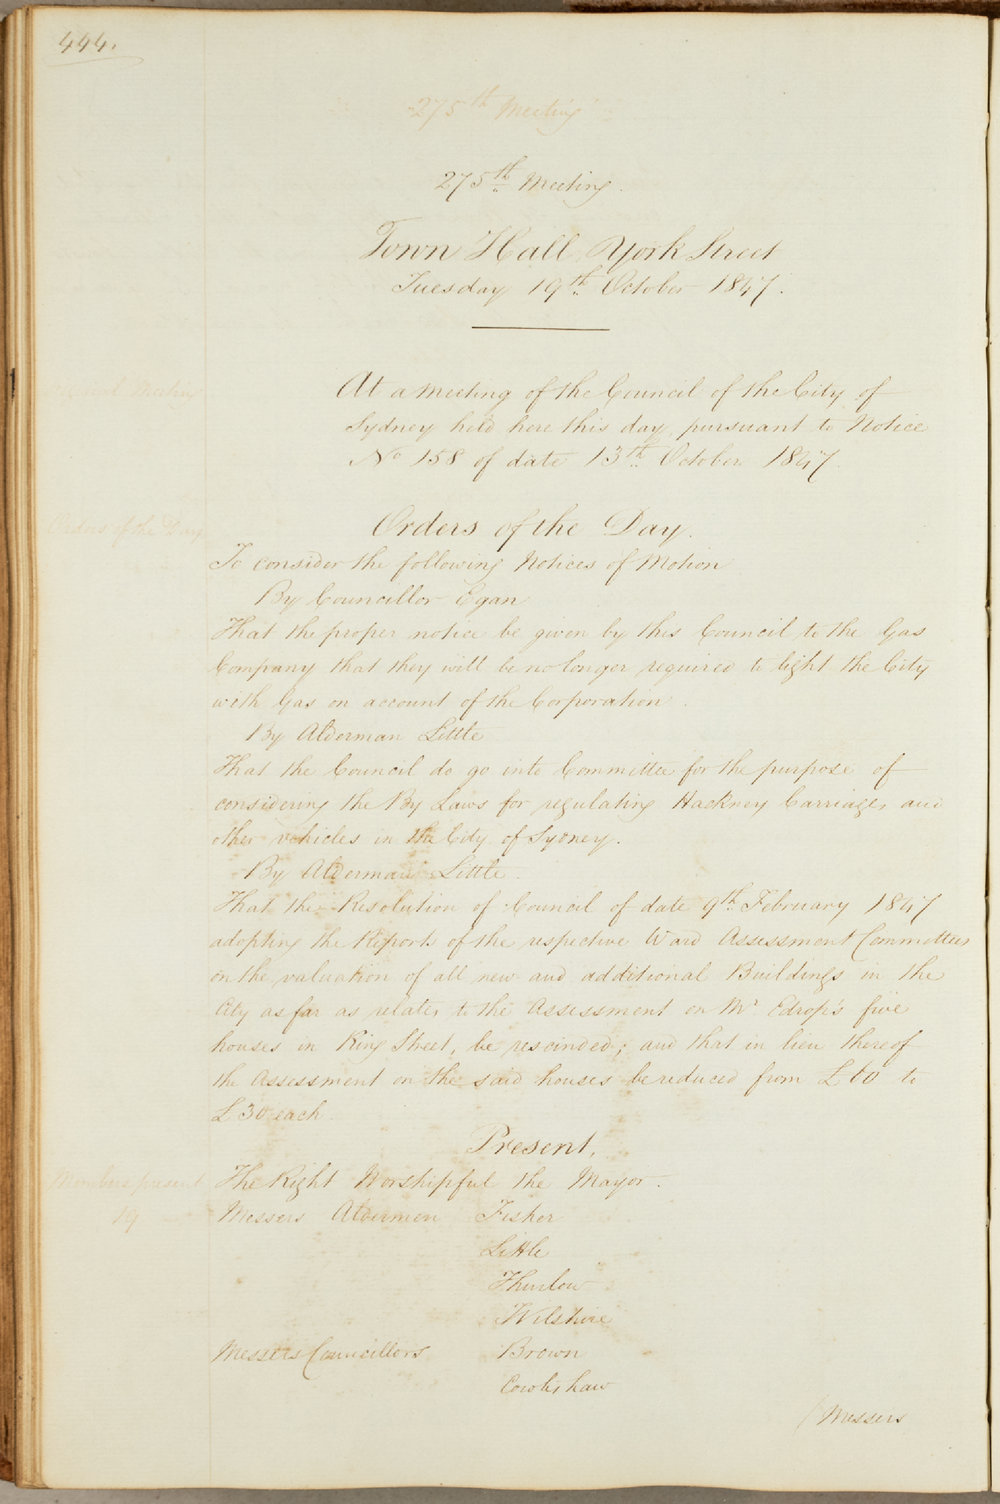 444.
275th Meeting
275th Meeting.
Town Hall York Street
Tuesday 19th October 1847.
Meeting
At a meeting of the Council of the City of
Sydney held here this day pursuant to Notice
No 158 of date 13th October 1847
Orders of the Day
Orders of the Day.
To consider the following Notices of Motion
By Councillor Egan
That the proper notice be given by this Council to the Gas
Company that they will be no longer required to light the City
with Gas on account of the Corporation.
By Alderman Little
That the Council do go into Committee for the purpose of
considering the By Laws for regulating Hackney Carriages and
other vehicles in the City of Sydney.
By Alderman Little.
That the Resolution of Council of date 9th February 1847
adopting the Reports of the respective Ward Assessment Committees
on the valuation of all new and additional Buildings in the
City as far as relates to the Assessment on Mr Edrop's five
houses in King Street, be rescinded; and that in lieu thereof
the Assessment on the said houses be reduced from £ to
£30 each.
Present,
Members present
19
The Right Worshipful the Mayor.
Messers Aldermen Fisher
Little
Thurlow
Wilshire
Messers Councillors Brown
Cowlishaw
/Messers